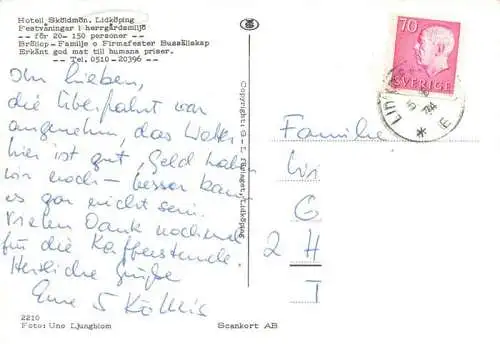 Hotell Sköldmön, Lidköping
Festvåningar i herrgårdsmiljö
-- för 20- 150 personer --
Bröllop- Familje o Firmafester Bussällskap
Erkänt god mat till humana priser.
-- Tel. 0510-20396 --
Ihr Lieben,
die Überfahrt war
angenehm, das Wetter
hier ist gut, Geld haben
wir noch - besser kann
es gar nicht sein.
Vielen Dank nochmal
für die Kaffeestunde.
Herzliche Grüße
Eure 5
2210
Foto: Uno Ljunghlom
Scankort AB
Lidköping
70
SVERIGE
Familie
G
2 H
T